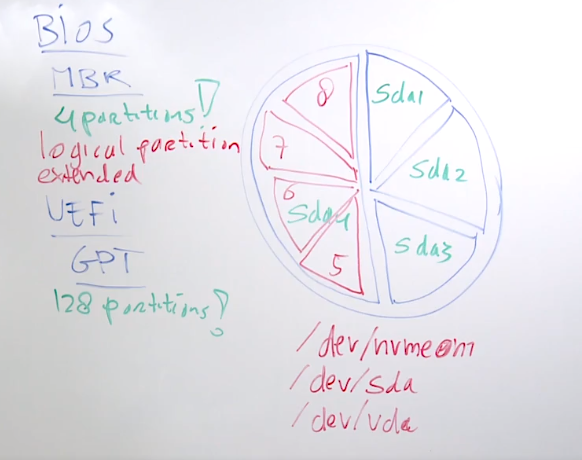 BIOS
MBR
4 partitions!
logical partition
extended
UEFi
GPT
128 partitions!
sda1
sda2
sda3
sda4
5
6
7
8
/dev/nvme0n1
/dev/sda
/dev/vda